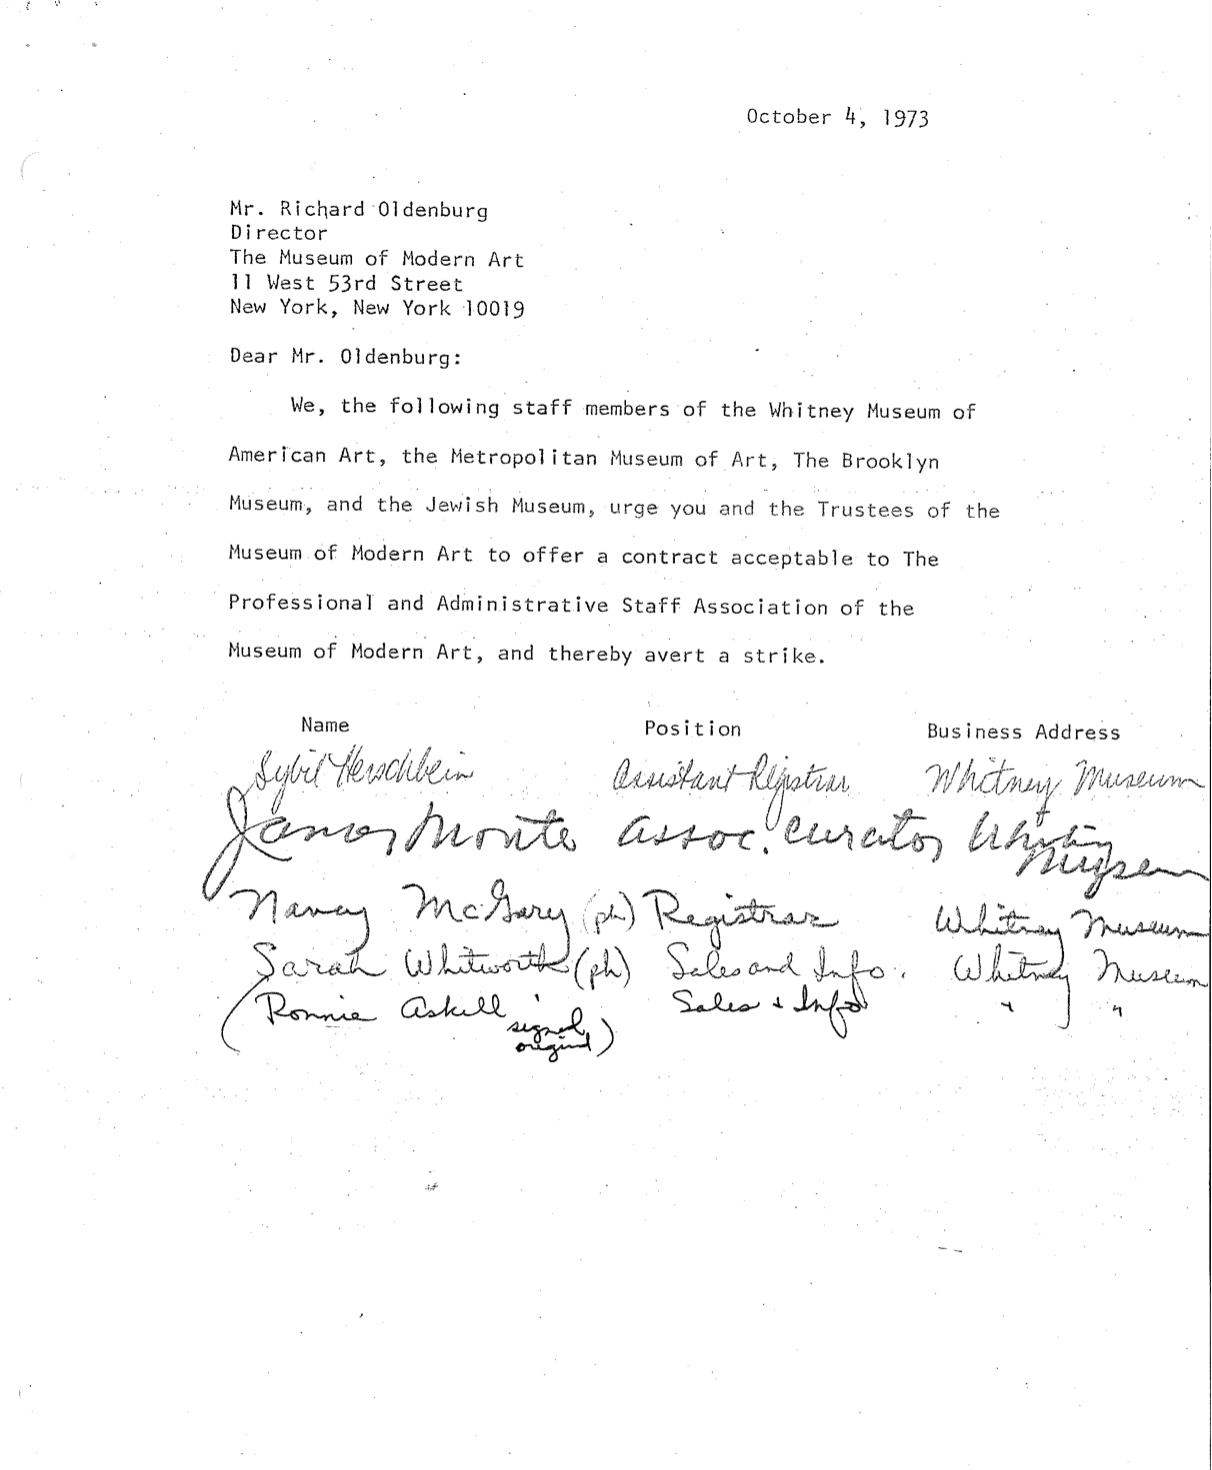 October 4, 1973
Mr. Richard Oldenburg
Director
The Museum of Modern Art
11 West 53rd Street
New York, New York 10019
Dear Mr. Oldenburg:
We, the following staff members of the Whitney Museum of
American Art, the Metropolitan Museum of Art, The Brooklyn
Museum, and the Jewish Museum, urge you and the Trustees of the
Museum of Modern Art to offer a contract acceptable to The
Professional and Administrative Staff Association of the
Museum of Modern Art, and thereby avert a strike.
Name Position Business Address
Sybil Herschbein Assistant Registrar Whitney Museum
James Monte Assoc. Curator Whitney
Museum
Nancy McGary (ph) Registrar Whitney Museum
Sarah Whitworth (ph) Sales and Info. Whitney Museum
(Ronnie Askill Sales + Info " "
signed
original)